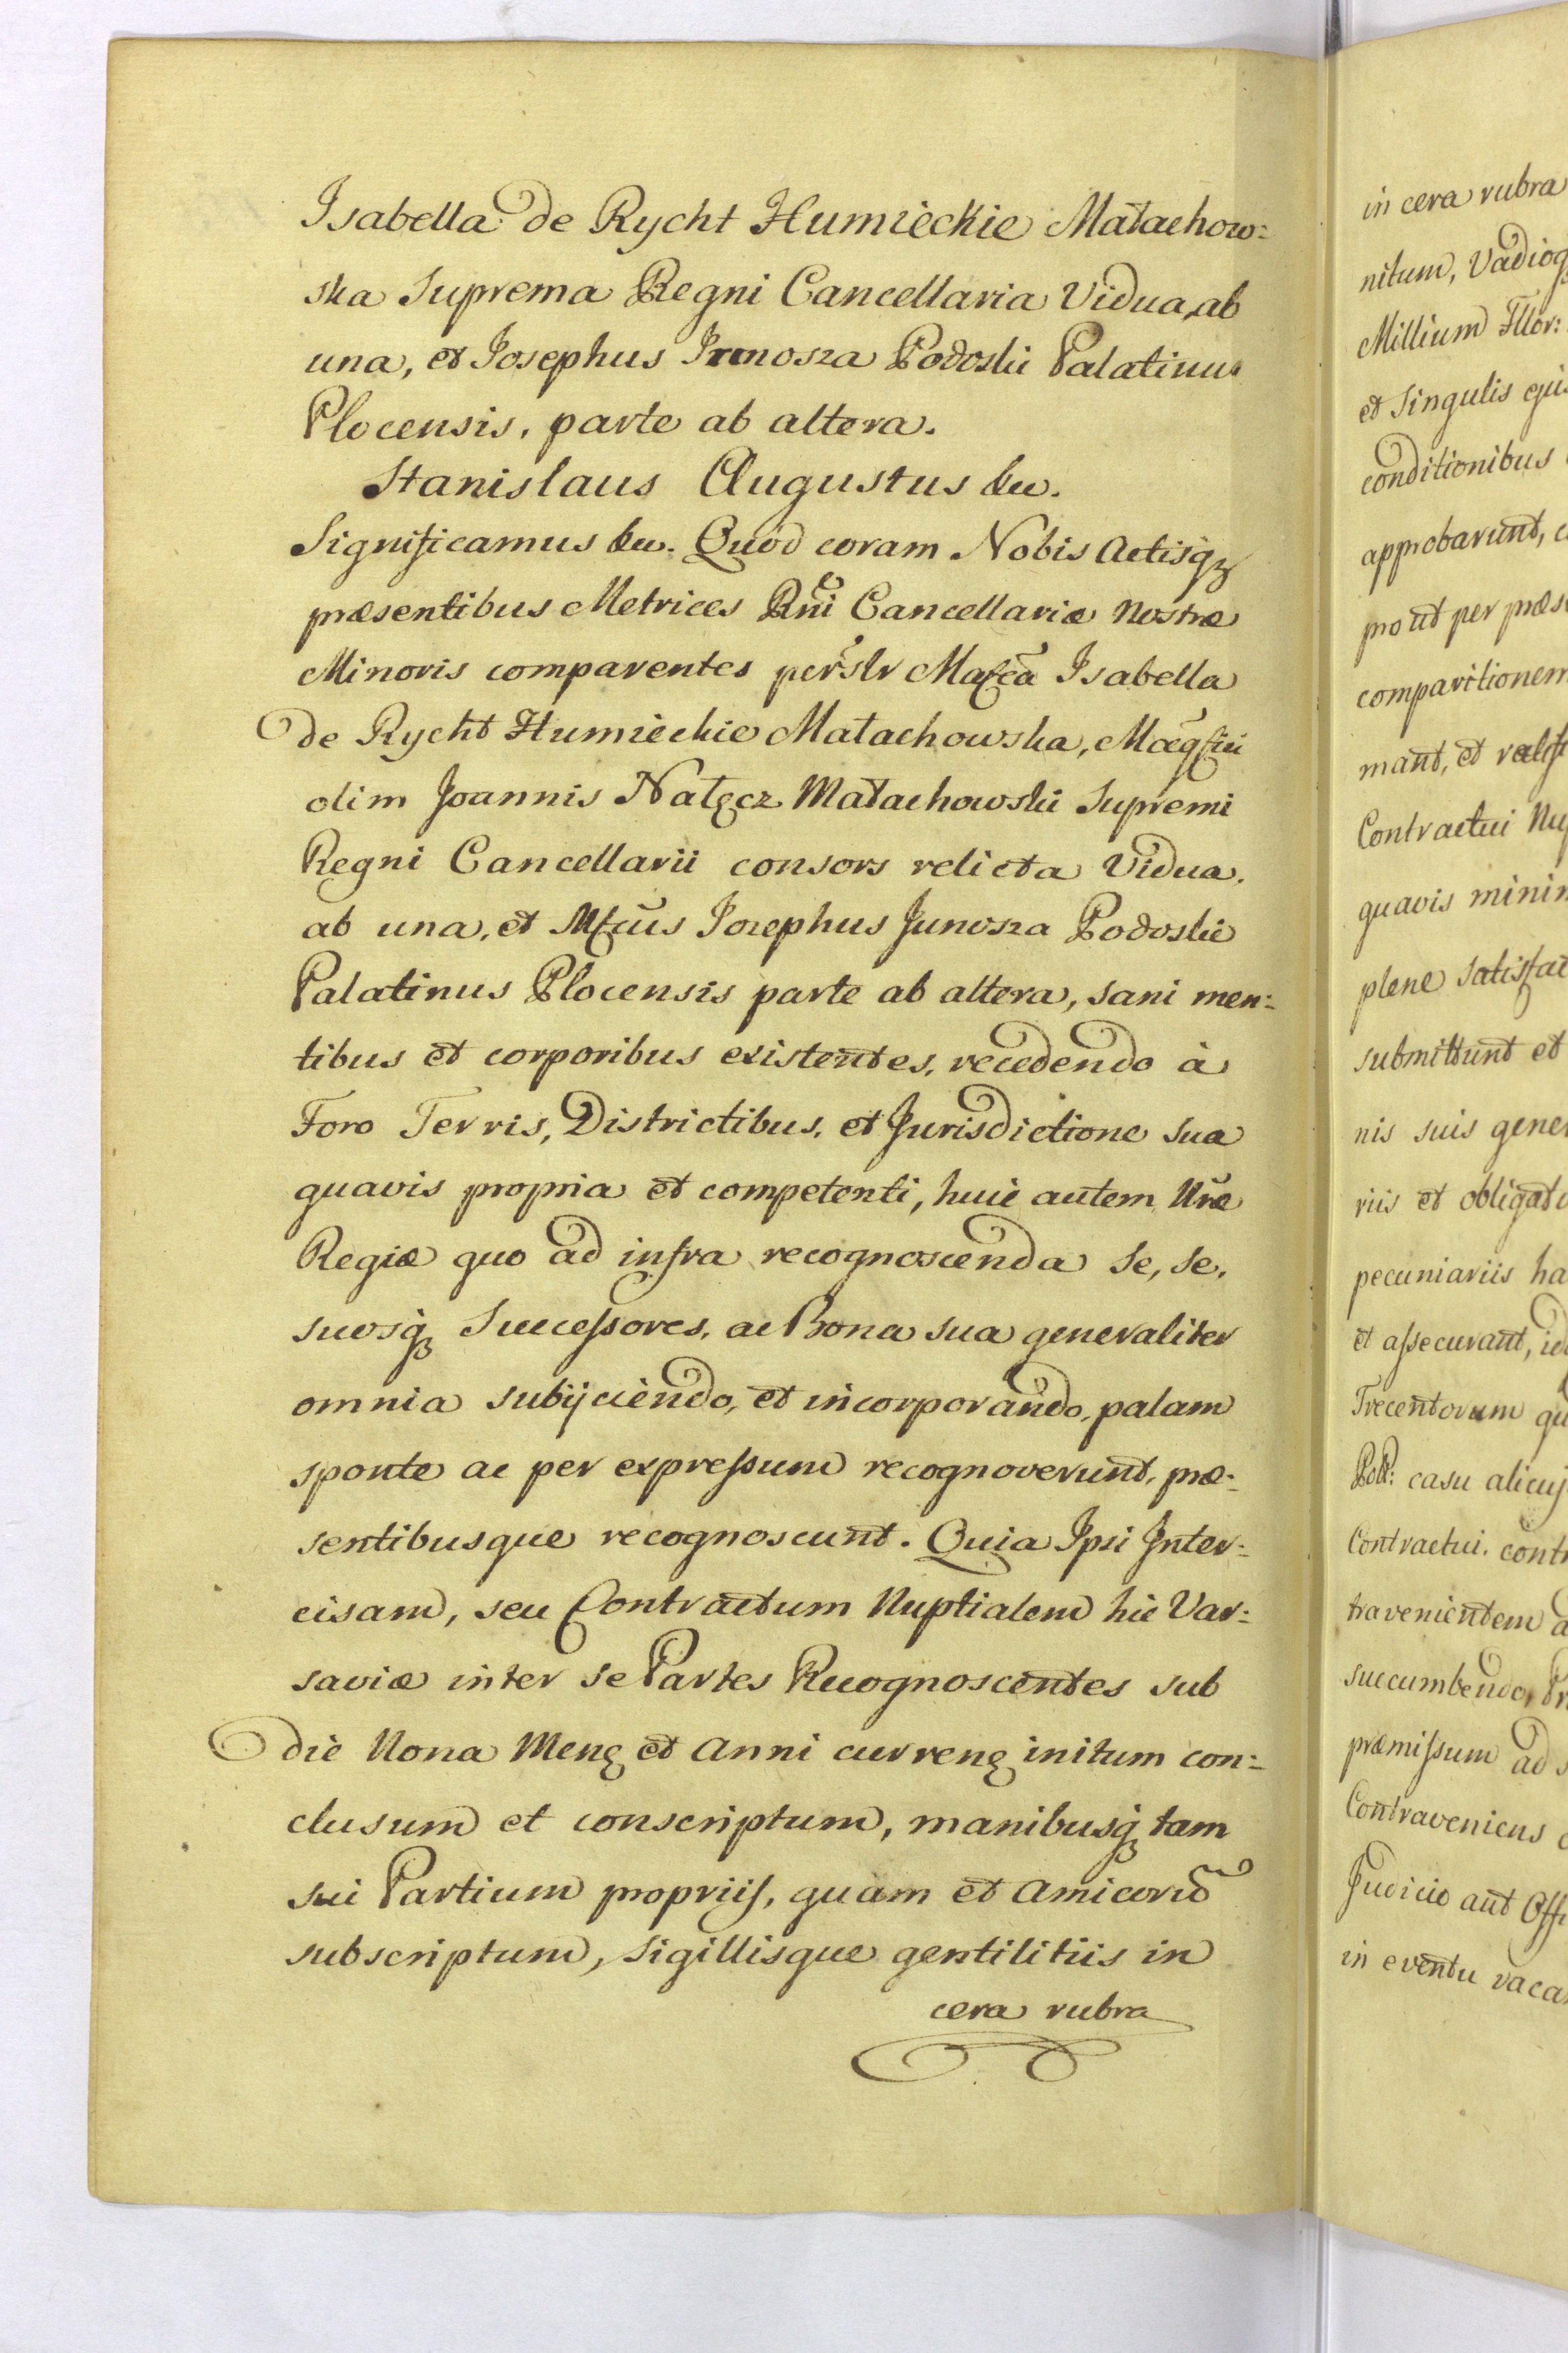 Isabella de Rycht Humieckie Małachow:
ska Suprema Regni Cancellaria Vidua, ab
una, et Josephus Junosza Podoski Palatinus
Plocensis, parte ab altera.
Stanislaus Augustus &c.
Significamus &c. Quod coram Nobis Actisq̃
præsentibus Metrices Rñi Cancellariæ Nostræ
Minoris comparentes persl̃r Mafc̃a Isabella
de Rycht Humieckie Małachowska, Magfici
olim Joannis Nałęcz Małachowski Supremi
Regni Cancellarii consors relicta Vidua.
ab una, et Mfcũs Josephus Junosza Podoskie
Palatinus Plocensis parte ab altera, sani men:
tibus et corporibus existentes, recedendo à
Foro Terris, Districtibus, et Jurisdictione sua
quavis propria et competenti, huic autem Nræ
Regiæ quo ad infra recognoscenda se, se,
suosq̃ Successores, ac Bona sua generaliter
omnia subijciendo, et incorporando, palam
sponte ac per expressum recognoverunt, præ:
sentibusque recognoscunt. Quia Ipsi Inter:
cisam, seu Contractum Nuptialem hic Var:
saviæ inter se Partes Recognoscentes sub
die Nona Mens et Anni currens initum con:
clusum et conscriptum, manibusq̃ tam
sui Partium propriis, quam et Amicorũ
subscriptum, sigillisque gentilitiis in
cera rubra
in cera rubra
nitum, Vadioq
Millium Fllor:
et Singulis ejus
conditionibus
approbarunt, c
prout per præs
comparitionem
mant, et
Contractui Nup
quavis minim
plene satisfac
submittunt et
nis suis gener
riis et obligato
pecuniariis ha
et assecurant, id
Trecentorum qu
Poll: casu alicuj
Contractui. contr
travenientem a
succumbendo, Pr
præmissum ad s
Contraveniens c
Judicio aut Offi
in eventu vaca